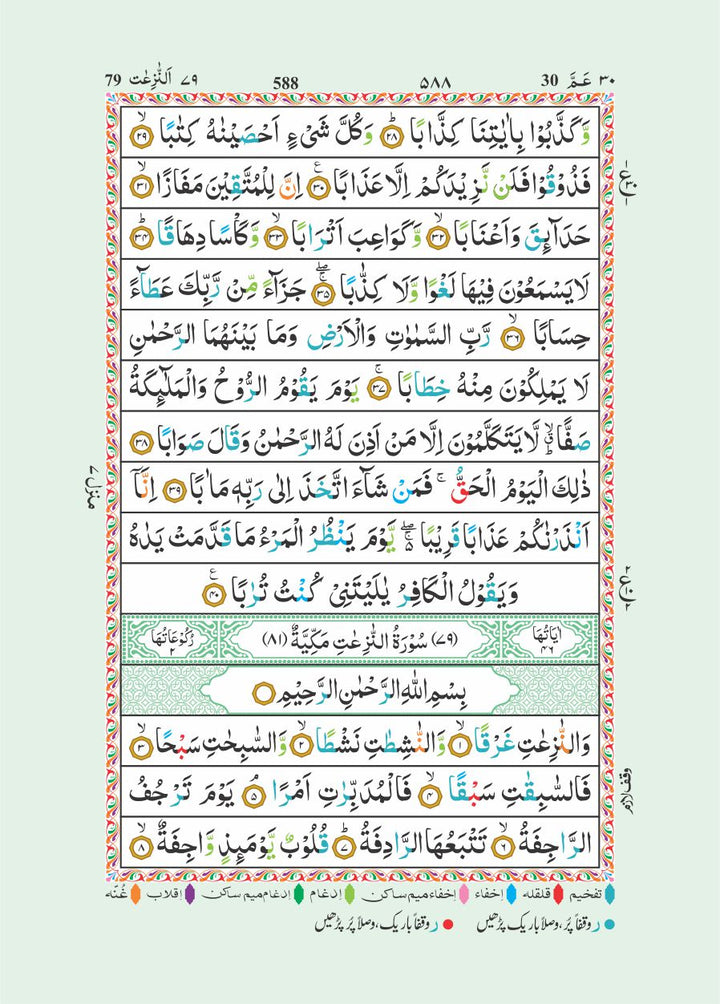 ٣٠ عَمَّ 30 ٥٨٨ 588 ٧٩ اَلنّٰزِعٰت 79
وَّكَذَّبُوْا بِاٰيٰتِنَا كِذَّابًا ؕ‏ ﴿۲۸﴾ وَكُلَّ شَىْءٍ اَحْصَيْنٰهُ كِتٰبًا ۙ‏ ﴿۲۹﴾
فَذُوْقُوْا فَلَنْ نَّزِيْدَكُمْ اِلَّا عَذَابًا ﴿۳۰﴾ ع اِنَّ لِلْمُتَّقِيْنَ مَفَازًا ۙ‏ ﴿۳۱﴾
حَدَآئِقَ وَاَعْنَابًا ۙ‏ ﴿۳۲﴾ وَّكَوَاعِبَ اَتْرَابًا ۙ‏ ﴿۳۳﴾ وَّكَاْسًا دِهَاقًا ؕ‏ ﴿۳۴﴾
لَا يَسْمَعُوْنَ فِيْهَا لَغْوًا وَّلَا كِذّٰبًا ۚ‏ ﴿۳۵﴾ جَزَآءً مِّنْ رَّبِّكَ عَطَآءً
حِسَابًا ۙ‏ ﴿۳۶﴾ رَّبِّ السَّمٰوٰتِ وَالْاَرْضِ وَمَا بَيْنَهُمَا الرَّحْمٰنِ
لَا يَمْلِكُوْنَ مِنْهُ خِطَابًا ۚ‏ ﴿۳۷﴾ يَوْمَ يَقُوْمُ الرُّوْحُ وَالْمَلٰٓئِكَةُ
صَفًّا ؕۙ لَّا يَتَكَلَّمُوْنَ اِلَّا مَنْ اَذِنَ لَهُ الرَّحْمٰنُ وَقَالَ صَوَابًا ﴿۳۸﴾
ذٰلِكَ الْيَوْمُ الْحَقُّ ۚ فَمَنْ شَآءَ اتَّخَذَ اِلٰى رَبِّهٖ مَاٰبًا ﴿۳۹﴾ اِنَّاۤ
منزل ٧
اَنْذَرْنٰكُمْ عَذَابًا قَرِيْبًا ۖۚ يَّوْمَ يَنْظُرُ الْمَرْءُ مَا قَدَّمَتْ يَدٰهُ
وَيَقُوْلُ الْكَافِرُ يٰلَيْتَنِىْ كُنْتُ تُرٰبًا ﴿۴۰﴾ ع
اٰيَاتُهَا ٤٦ (٧٩) سُوْرَةُ النّٰزِعٰتِ مَكِّيَّةٌ (٨١) رُكُوْعَاتُهَا ٢
بِسْمِ اللّٰهِ الرَّحْمٰنِ الرَّحِيْمِ
وَالنّٰزِعٰتِ غَرْقًا ۙ‏ ﴿۱﴾ وَّالنّٰشِطٰتِ نَشْطًا ۙ‏ ﴿۲﴾ وَّالسّٰبِحٰتِ سَبْحًا ۙ‏ ﴿۳﴾
فَالسّٰبِقٰتِ سَبْقًا ۙ‏ ﴿۴﴾ فَالْمُدَبِّرٰتِ اَمْرًا ۘ‏ ﴿۵﴾ يَوْمَ تَرْجُفُ
وقف لازم
الرَّاجِفَةُ ۙ‏ ﴿۶﴾ تَتْبَعُهَا الرَّادِفَةُ ؕ‏ ﴿۷﴾ قُلُوْبٌ يَّوْمَئِذٍ وَّاجِفَةٌ ۙ‏ ﴿۸﴾
تفخیم قلقله إخفاء إخفاءمیم ساکن إدغام إدغام میم ساکن إقلاب غُنّه
ر وقفاً پُر، وصلاً باریک پڑھیں ر وقفاً باریک، وصلاً پُر پڑھیں